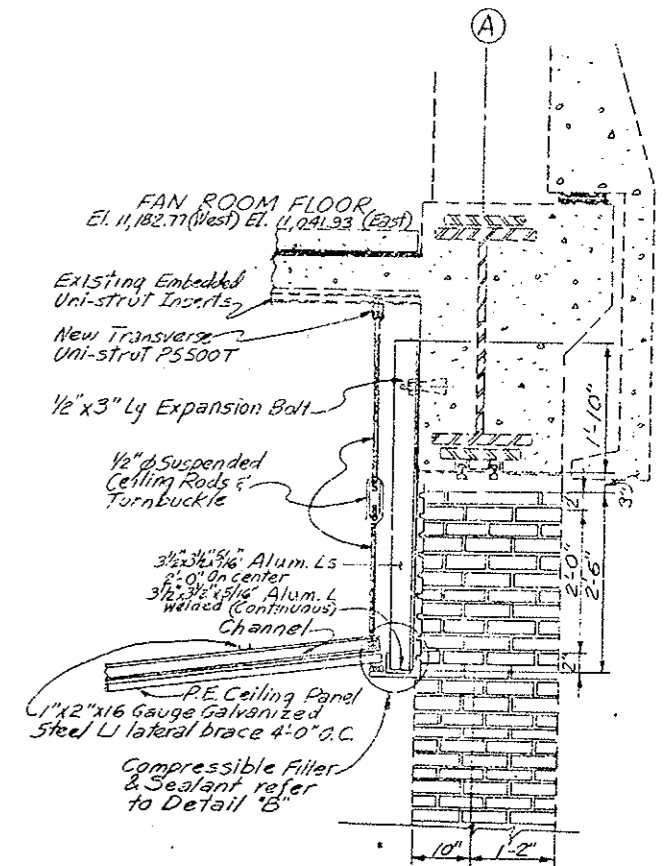 A
FAN ROOM FLOOR
El. 11,182.77 (West) El. 11,041.93 (East)
Existing Embedded
Uni-strut Inserts
New Transverse
Uni-strut P5500T
1/2" x 3" Lg Expansion Bolt
1/2" φ Suspended
Ceiling Rods &
Turnbuckle
3 1/2" x 3 1/2" x 5/16" Alum. Ls
2'-0" On center
3 1/2" x 3 1/2" x 5/16" Alum. L
welded (Continuous)
Channel
P.E. Ceiling Panel
1" x 2" x 16 Gauge Galvanized
Steel LJ lateral brace 4'-0" O.C.
Compressible Filler
& Sealant refer
to Detail "B"
1'-10"
3"
2"
2'-0"
2'-6"
2"
10"
1'-2"